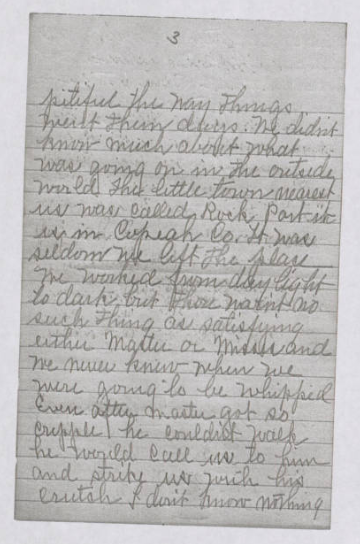 3
pitiful the way things
went them days. We didn't
know much about what
was going on in the outside
world the little town nearest
us was called Rock Port it
is in Copeah Co. It was
seldom we left the place
We worked from day light
to dark, but there want no
such thing as satisfying
either Master or Misses and
we never knew when we
were going to be whipped
Even after master got so
cripple he couldn't walk
he would call us to him
and strike us with his
crutch I don't know nothing